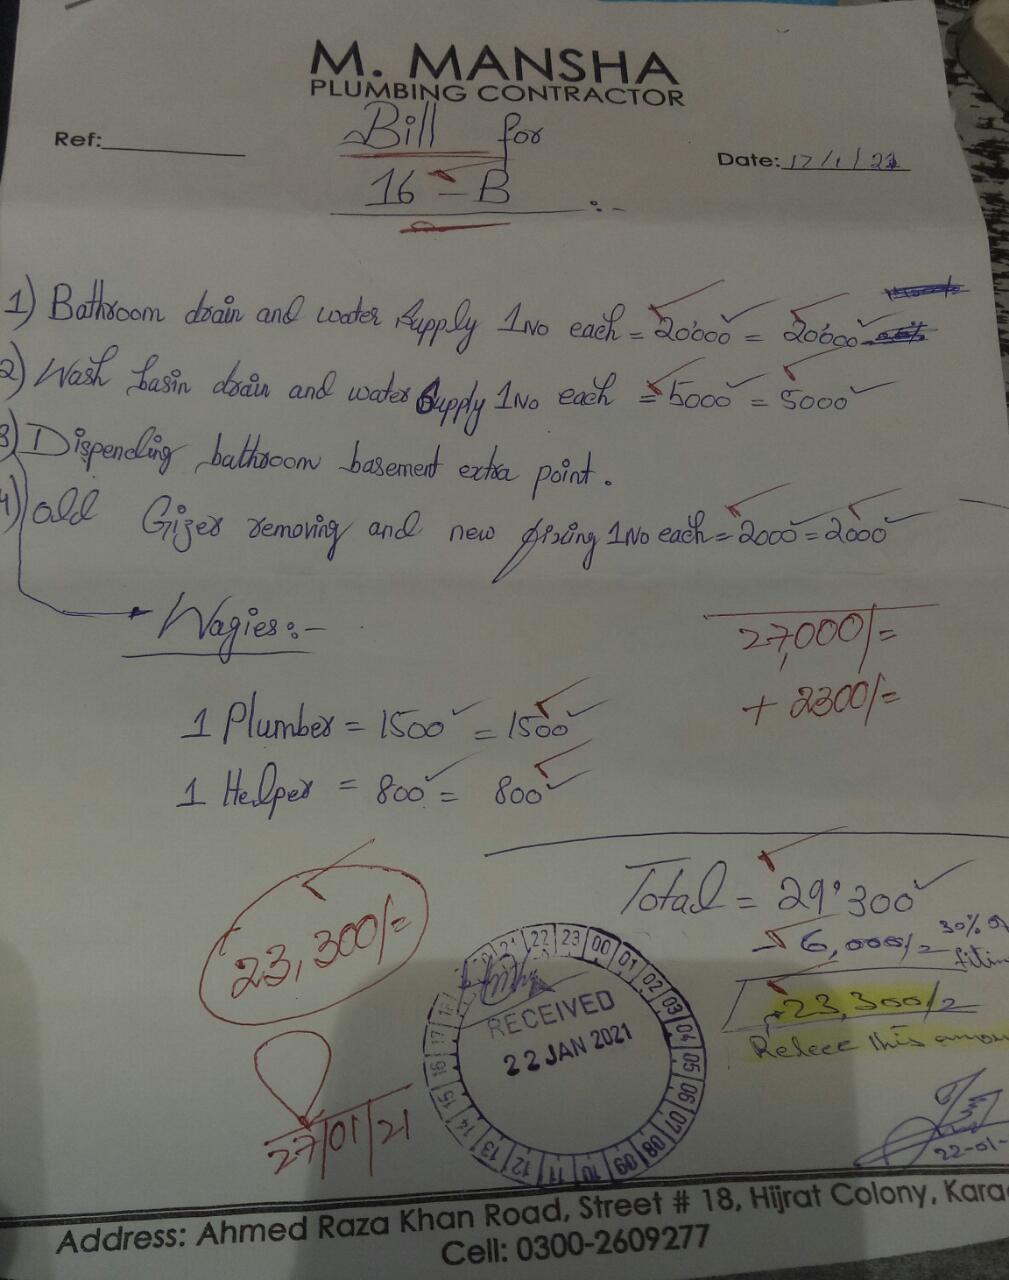 M. MANSHA
PLUMBING CONTRACTOR
Ref:
Bill for
Date: 12/1/21
16 - B :-
1) Bathroom drain and water supply 1No each = 20'000 = 20'000
2) Wash basin drain and water supply 1No each = 5000 = 5000
3) Dispending bathroom basement extra point.
4) old Gizer removing and new fixing 1No each = 2000 = 2000
Wagies:-
27,000/=
+ 2300/=
1 Plumber = 1500 = 1500
1 Helper = 800 = 800
Total = 29'300
- 6,000/= 30% of
23,300/=
23,300/=
Relece this amou
RECEIVED
22 JAN 2021
21 22 23 00 01 02 03 04 05 06 07 08 09 10 11 12 13 14 15 16 17 18
27/01/21
22-01-
Address: Ahmed Raza Khan Road, Street # 18, Hijrat Colony, Kara
Cell: 0300-2609277